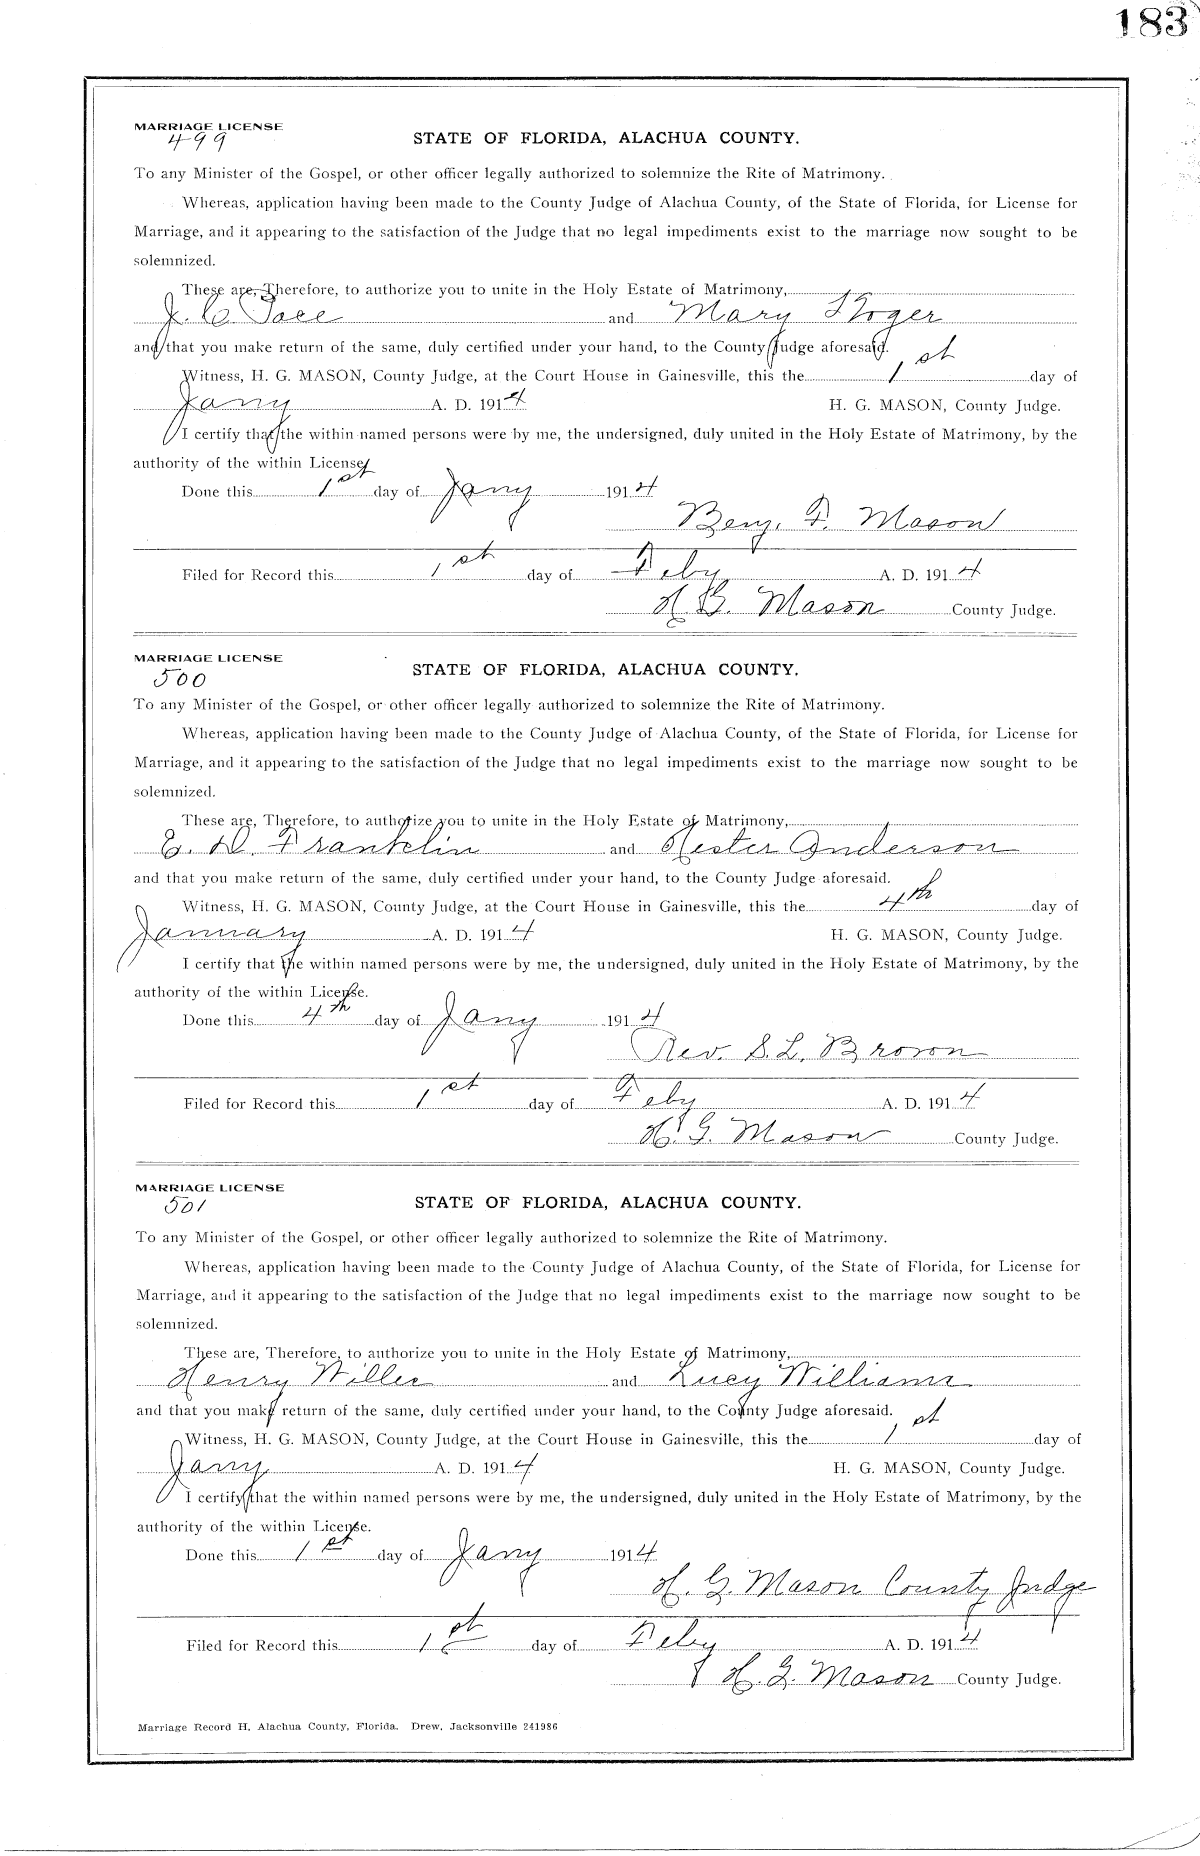 183
MARRIAGE LICENSE
499
STATE OF FLORIDA, ALACHUA COUNTY.
To any Minister of the Gospel, or other officer legally authorized to solemnize the Rite of Matrimony.
Whereas, application having been made to the County Judge of Alachua County, of the State of Florida, for License for
Marriage, and it appearing to the satisfaction of the Judge that no legal impediments exist to the marriage now sought to be
solemnized.
These are, Therefore, to authorize you to unite in the Holy Estate of Matrimony,
J. C. and Mary
and that you make return of the same, duly certified under your hand, to the County Judge aforesaid.
Witness, H. G. MASON, County Judge, at the Court House in Gainesville, this the 1st day of
Jany A. D. 1914 H. G. MASON, County Judge.
I certify that the within named persons were by me, the undersigned, duly united in the Holy Estate of Matrimony, by the
authority of the within License.
Done this 1st day of Jany 1914
Benj. F. Mason
Filed for Record this 1st day of Feby A. D. 1914
H. G. Mason County Judge.
MARRIAGE LICENSE
500
STATE OF FLORIDA, ALACHUA COUNTY.
To any Minister of the Gospel, or other officer legally authorized to solemnize the Rite of Matrimony.
Whereas, application having been made to the County Judge of Alachua County, of the State of Florida, for License for
Marriage, and it appearing to the satisfaction of the Judge that no legal impediments exist to the marriage now sought to be
solemnized.
These are, Therefore, to authorize you to unite in the Holy Estate of Matrimony,
E. D. Franklin and Hester Anderson
and that you make return of the same, duly certified under your hand, to the County Judge aforesaid.
Witness, H. G. MASON, County Judge, at the Court House in Gainesville, this the 4th day of
January A. D. 1914 H. G. MASON, County Judge.
I certify that the within named persons were by me, the undersigned, duly united in the Holy Estate of Matrimony, by the
authority of the within License.
Done this 4th day of Jany 1914
Rev. S. L. Brown
Filed for Record this 1st day of Feby A. D. 1914
H. G. Mason County Judge.
MARRIAGE LICENSE
501
STATE OF FLORIDA, ALACHUA COUNTY.
To any Minister of the Gospel, or other officer legally authorized to solemnize the Rite of Matrimony.
Whereas, application having been made to the County Judge of Alachua County, of the State of Florida, for License for
Marriage, and it appearing to the satisfaction of the Judge that no legal impediments exist to the marriage now sought to be
solemnized.
These are, Therefore, to authorize you to unite in the Holy Estate of Matrimony,
Henry and Lucy Williams
and that you make return of the same, duly certified under your hand, to the County Judge aforesaid.
Witness, H. G. MASON, County Judge, at the Court House in Gainesville, this the 1st day of
Jany A. D. 1914 H. G. MASON, County Judge.
I certify that the within named persons were by me, the undersigned, duly united in the Holy Estate of Matrimony, by the
authority of the within License.
Done this 1st day of Jany 1914
H. G. Mason County Judge
Filed for Record this 1st day of Feby A. D. 1914
H. G. Mason County Judge.
Marriage Record H, Alachua County, Florida. Drew, Jacksonville 241986